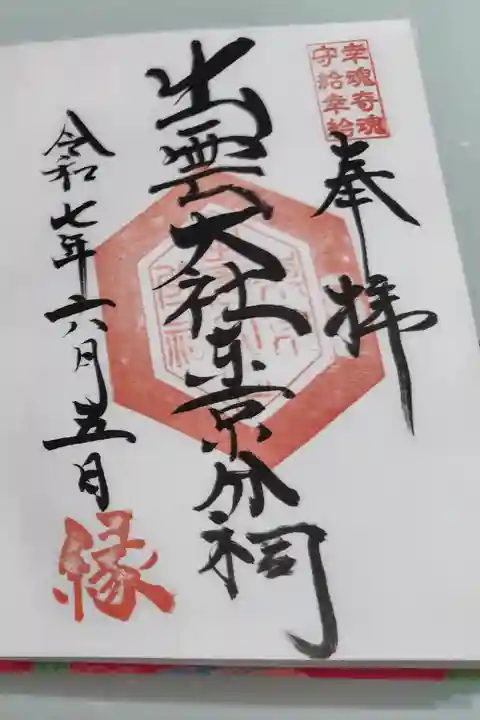 幸魂奇魂
守給幸給
奉拝
出雲大社東京分祠
令和七年六月五日
縁